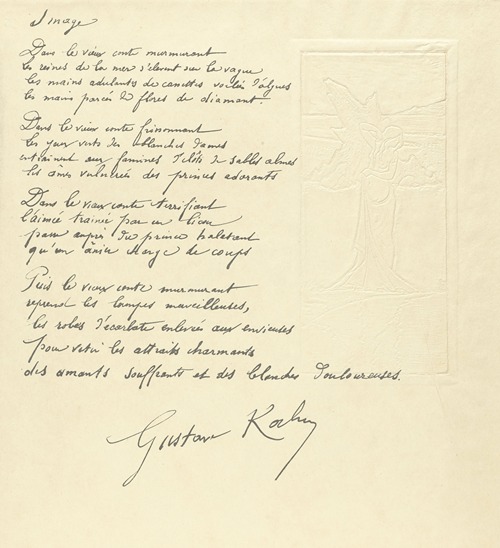 Image
Dans le vieux conte murmurant
les reines de la mer s'élèvent sur la vague
les mains adulantes de canettes voilées d'algues
les mains parées de flores de diamant.
Dans le vieux conte frissonnant
les yeux verts des blanches dames
entraînent aux famines d'étés de sables almes
les âmes vulnérées des princes adorants
Dans le vieux conte terrifiant
l'aimée trainée par un licou
passe auprès du prince haletant
qu'un ânier charge de coups
Puis le vieux conte murmurant
reprend les lampes merveilleuses,
les robes d'écarlate enlevées aux envieuses
pour vêtir les attraits charmants
des amants souffrants et des blanches douloureuses.
Gustave Kahn